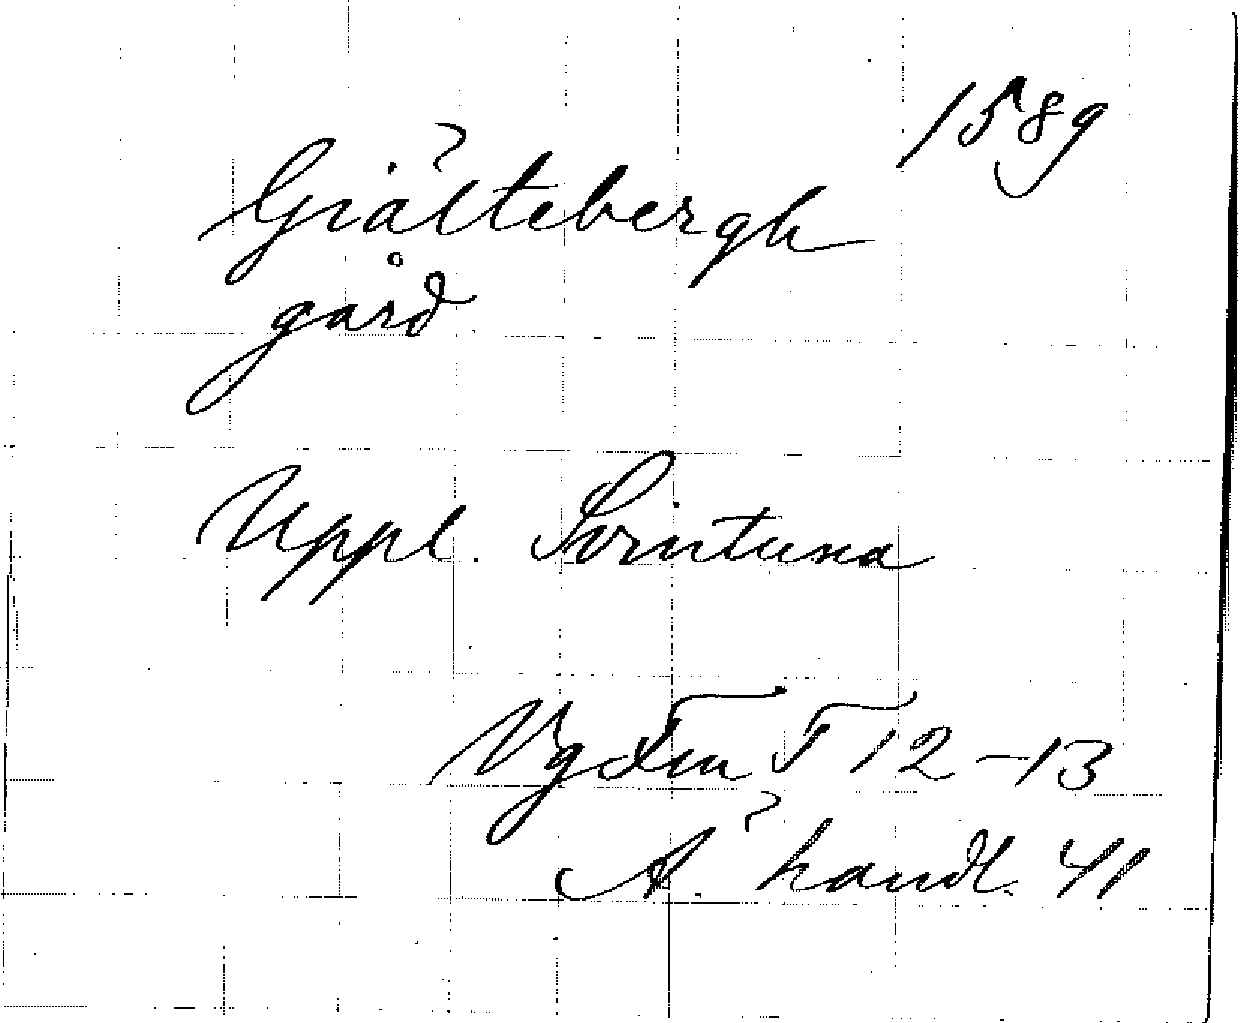 1589
Giältebergh
gård
Uppl. Svintuna
12-13
A. handl. 41